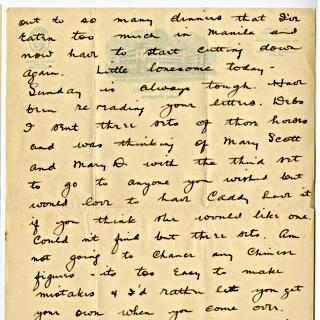 out to so many dinners that I've
Eaten too much in Manila and
now have to start cutting down
again. Little lonesome today -
Sunday is always tough. Have
been re reading your letters. Debs
I sent three sets of those horses
and was thinking of Mary Scott
and Mary D with the third set
to go to anyone you wished but
would love to have Caddy have it
if you think she would like one.
Could n't find but three sets. Am
not going to chance any Chinese
figures - its too Easy to make
mistakes & I'd rather let you get
your own when you come over.